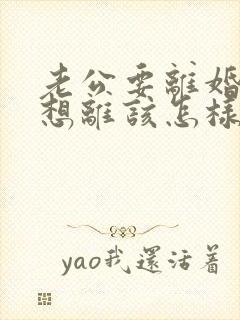 老公要離婚
想離該怎樣
yao我還活着